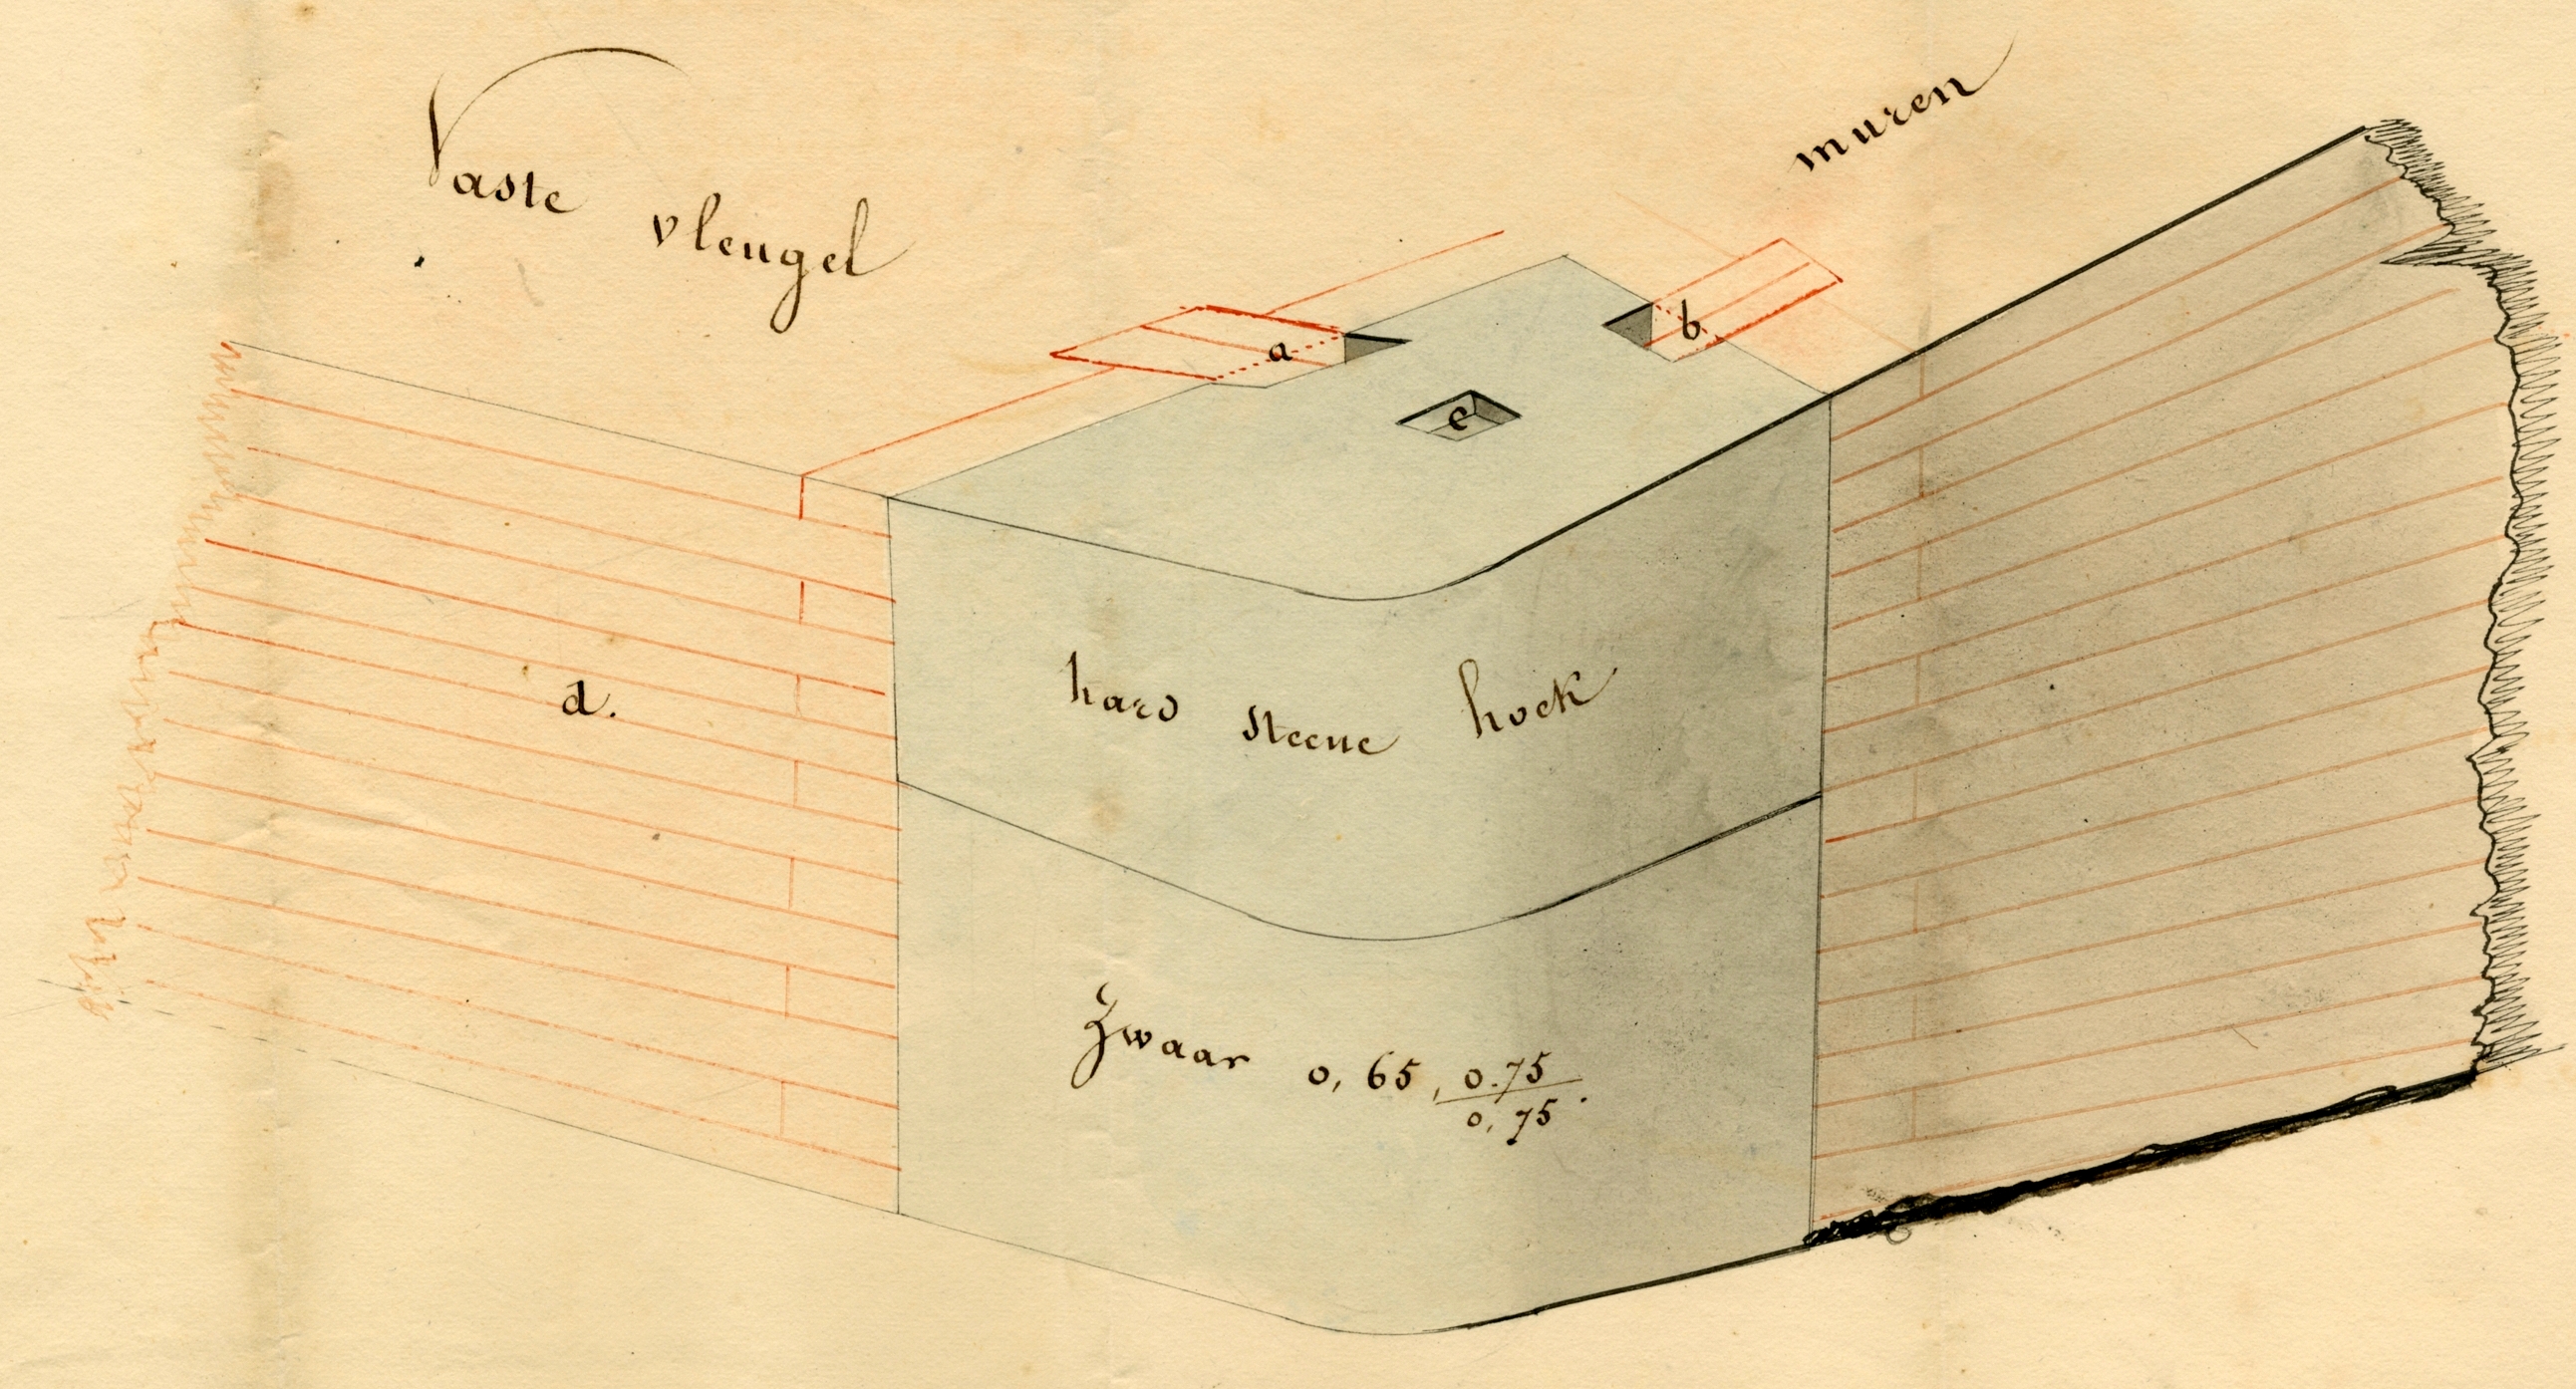 Vaste vleugel muren
a
b
c
d.
hard steene hoek
Zwaar 0,65, 0.75
0,75.